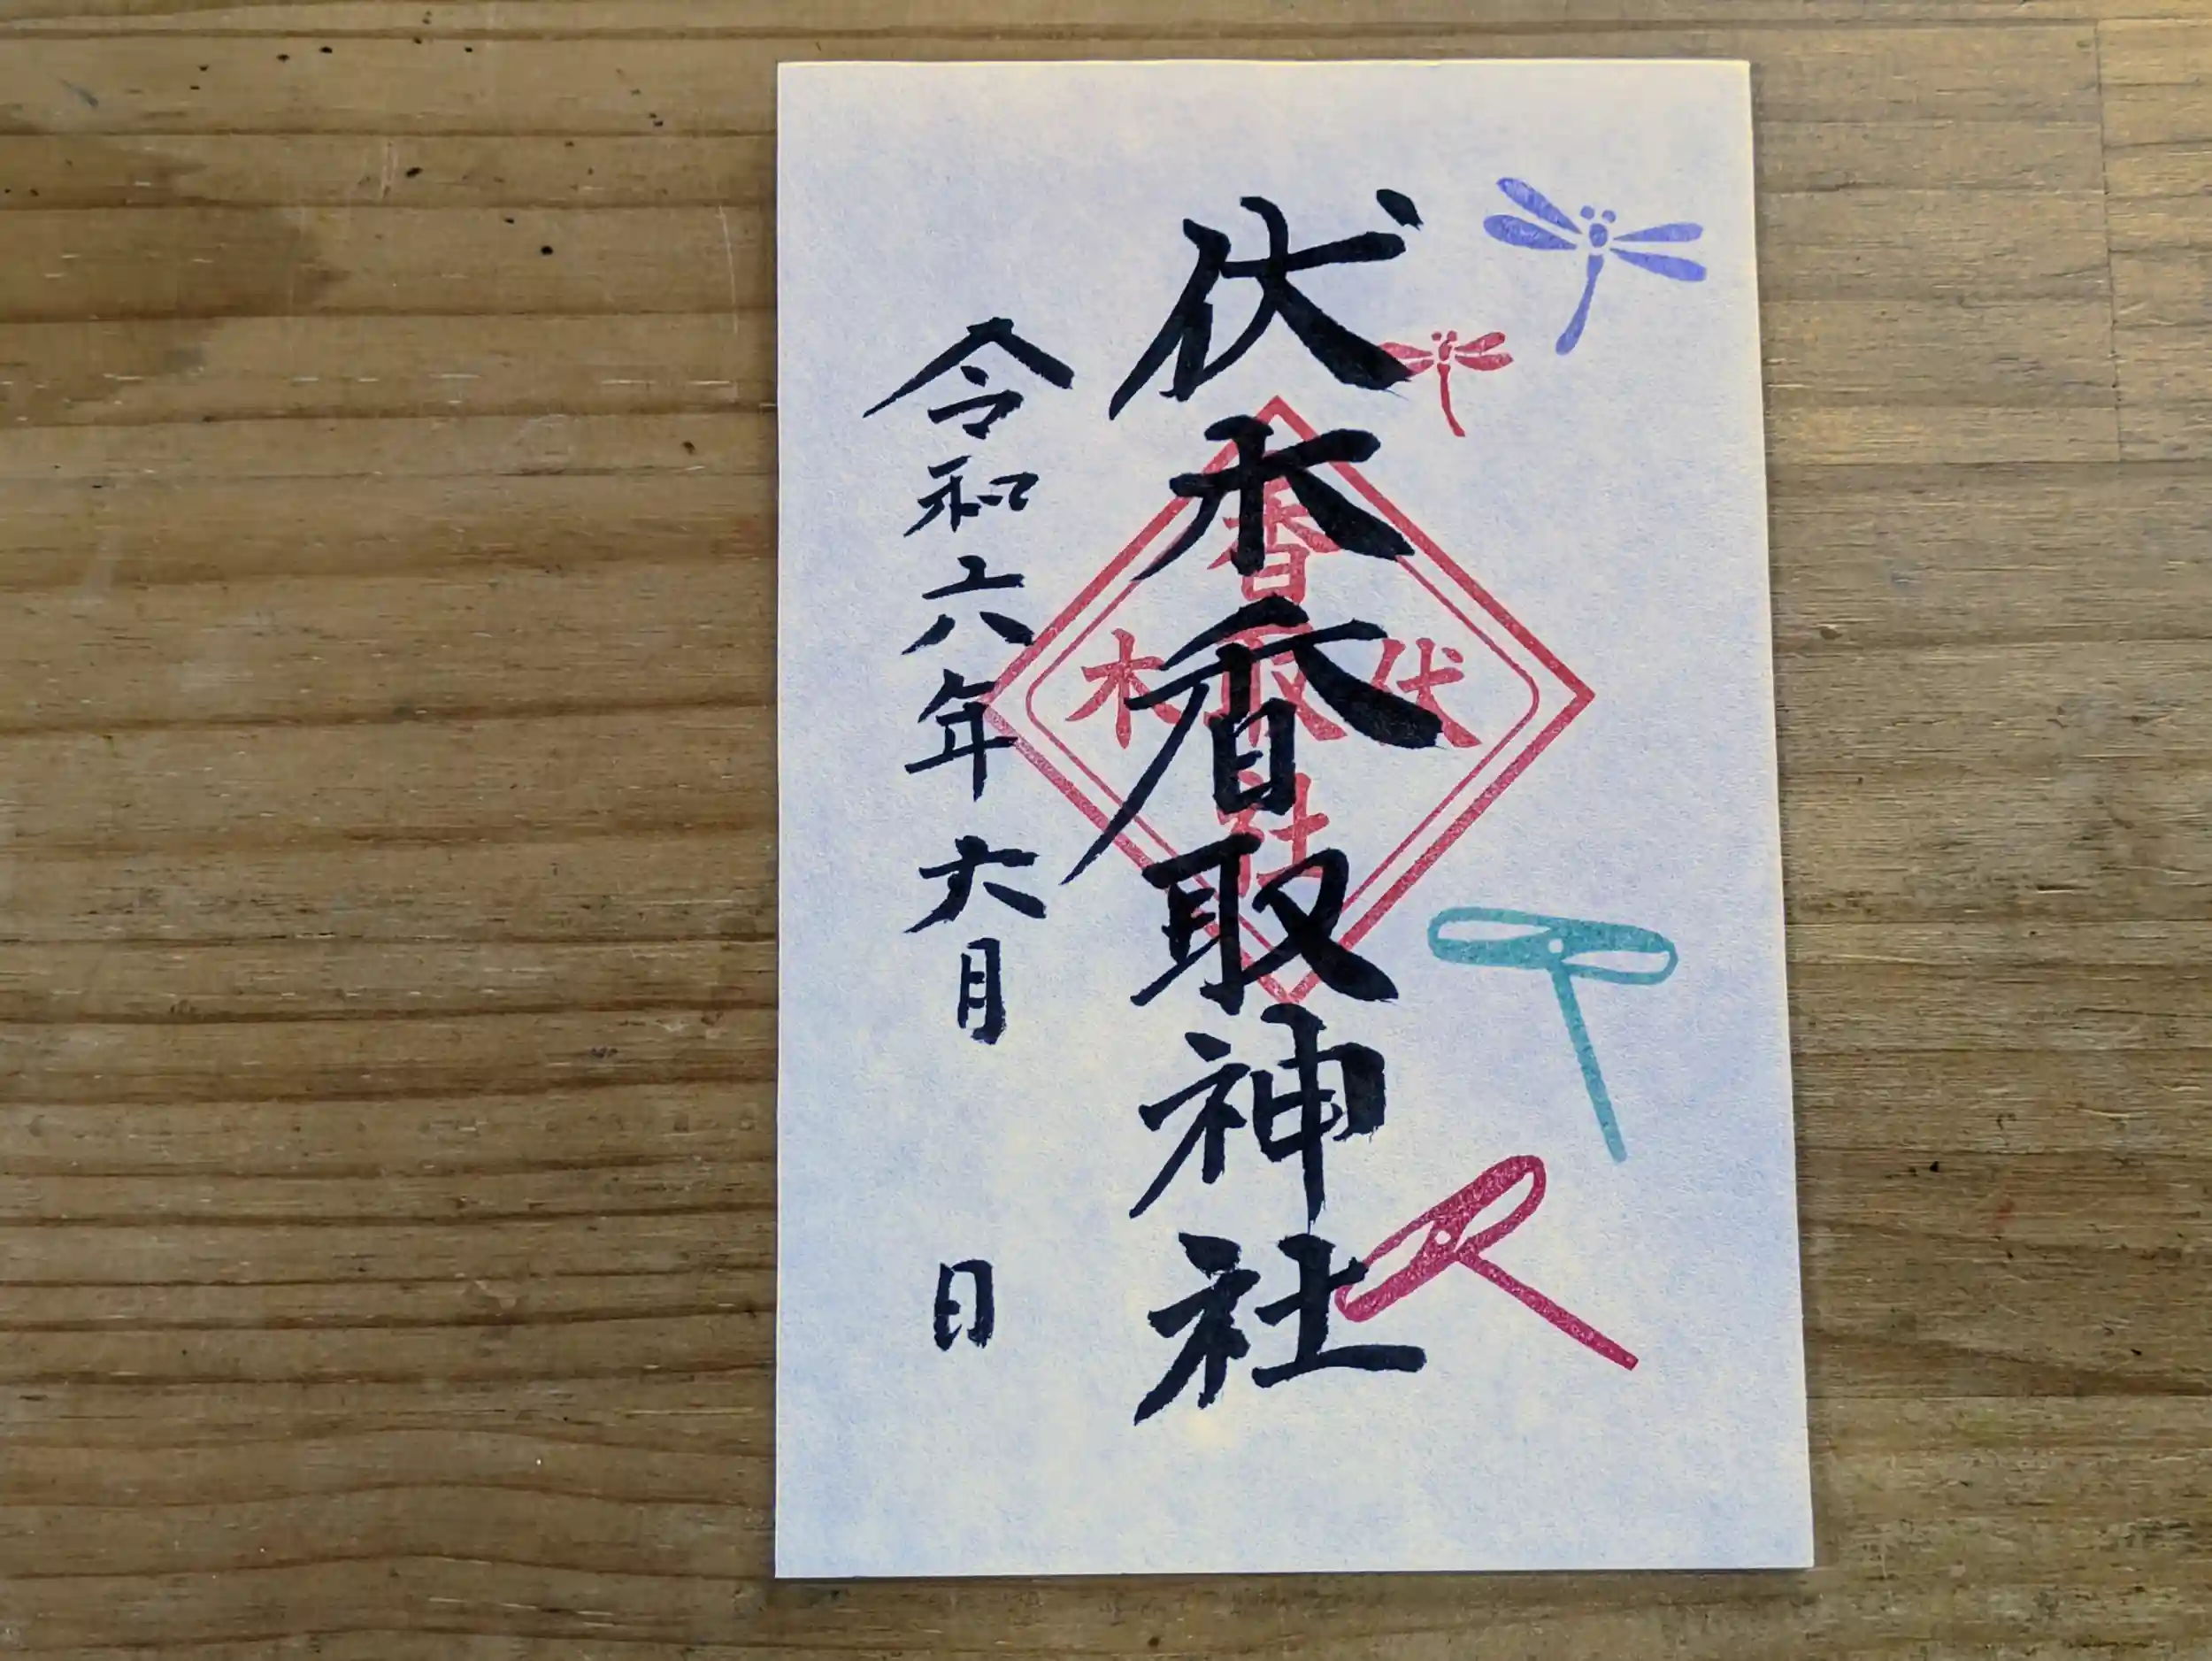 伏木香取神社
令和六年六月 日
香
伏取木
社